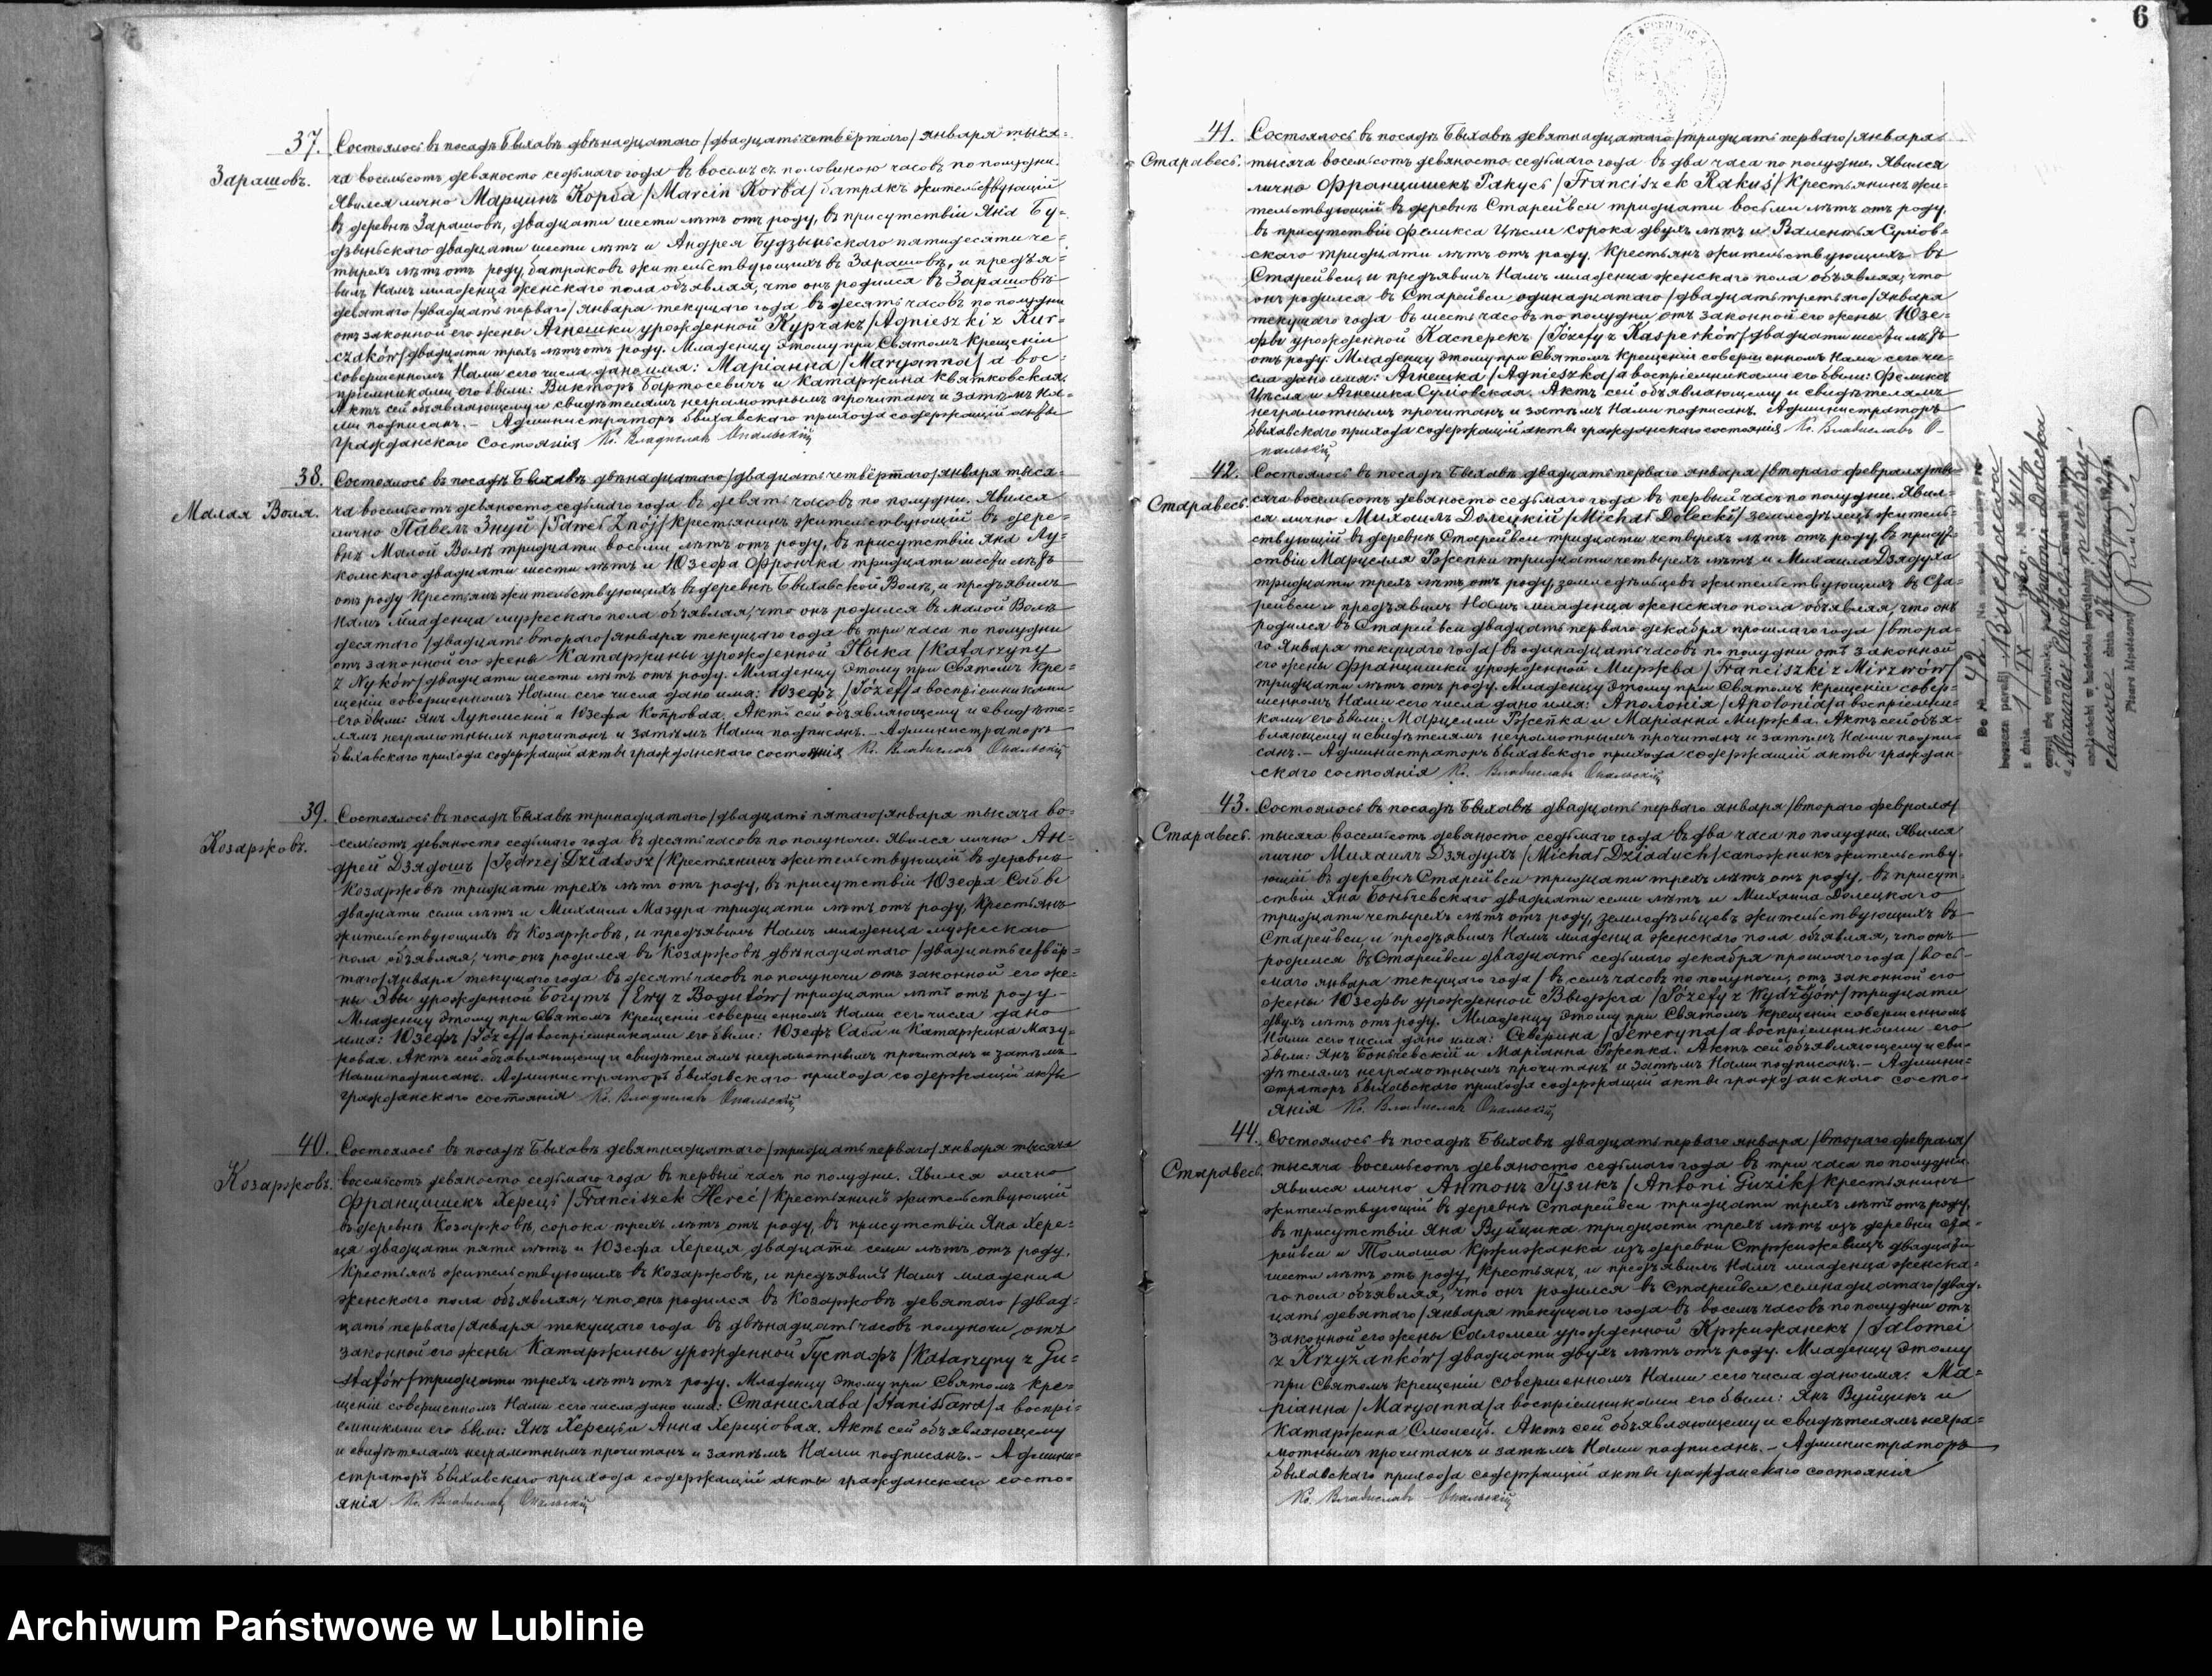 37.
Зарашовъ.
Состоялось въ посадѣ Быхавѣ двѣнадцатаго /двадцать четвёртаго/ января тыся=
ча восемьсотъ девяносто седьмаго года въ восемь съ половиною часовъ по полудни.
Явился лично Марцинъ Корба /Marcin Korba/ батракъ жительствующій
въ деревнѣ Зарашовѣ, двадцати шести лѣтъ отъ роду, въ присутствіи Яна Бу=
дзыньскаго двадцати шести лѣтъ и Андрея Будзыньскаго пятидесяти че=
тырехъ лѣтъ отъ роду, батраковъ жительствующихъ въ Зарашовѣ, и предъя=
вилъ Намъ младенца женскаго пола объявляя, что онъ родился въ Зарашовѣ
девятаго /двадцать перваго/ января текущаго года въ десять часовъ по полудни
отъ законной его жены Агнешки урожденной Курчакъ /Agnieszki z Kur=
czaków/ двадцати трехъ лѣтъ отъ роду. Младенцу этому при Святомъ Крещеніи
совершенномъ Нами сего числа дано имя: Маріанна /Maryanna/ а вос=
пріемниками его были: Викторъ Бартосевичъ и Катаржина Квятковская.
Актъ сей объявляющему и свидѣтелямъ неграмотнымъ прочитанъ и затѣмъ На=
ми подписанъ. – Администраторъ быхавскаго прихода содержащій акты
гражданскаго состоянія Кс. Владиславъ Опальскій
38.
Малая Воля.
Состоялось въ посадѣ Быхавѣ двѣнадцатаго /двадцать четвёртаго/ января тыся=
ча восемьсотъ девяносто седьмаго года въ девять часовъ по полудни. Явился
лично Павелъ Знуй /Paweł Znój/ крестьянинъ жительствующій въ дере=
внѣ Малой Волѣ тридцати восьми лѣтъ отъ роду, въ присутствіи Яна Лу=
комскаго двадцати шести лѣтъ и Юзефа Фрончка тридцати шести лѣтъ
отъ роду крестьянъ жительствующихъ въ деревнѣ Быхавской Волѣ, и предъявилъ
Намъ младенца мужескаго пола объявляя, что онъ родился въ Малой Волѣ
десятаго /двадцать втораго/ января текущаго года въ три часа по полудни
отъ законной его жены Катаржины урожденной Ныка /Katarzyny
z Nyków/ двадцати шести лѣтъ отъ роду. Младенцу этому при Святомъ Кре=
щеніи совершенномъ Нами сего числа дано имя: Юзефъ /Józef/ а воспріемниками
его были: Янъ Лукомскій и Юзефа Копровая. Актъ сей объявляющему и свидѣте=
лямъ неграмотнымъ прочитанъ и затѣмъ Нами подписанъ. – Администраторъ
быхавскаго прихода содержащій акты гражданскаго состоянія Кс. Владиславъ Опальскій
39.
Козаржовъ.
Состоялось въ посадѣ Быхавѣ тринадцатаго /двадцать пятаго/ января тысяча во=
семьсотъ девяносто седьмаго года въ десять часовъ по полуночи. Явился лично Ан=
дрей Дзядошъ /Jędrzej Dziadosz/ крестьянинъ жительствующій въ деревнѣ
Козаржовѣ тридцати трехъ лѣтъ отъ роду, въ присутствіи Юзефа Сабы
двадцати семи лѣтъ и Михаила Мазура тридцати лѣтъ отъ роду, крестьянъ
жительствующихъ въ Козаржовѣ, и предъявилъ Намъ младенца мужескаго
пола объявляя, что онъ родился въ Козаржовѣ двѣнадцатаго /двадцать четвёр=
таго/ января текущаго года въ десять часовъ по полуночи отъ законной его же=
ны Эвы урожденной Богутъ /Ewy z Bogutów/ тридцати лѣтъ отъ роду –
Младенцу этому при Святомъ Крещеніи совершенномъ Нами сего числа дано
имя: Юзефъ /Józef/ а воспріемниками его были: Юзефъ Саба и Катаржина Мазу=
ровая. Актъ сей объявляющему и свидѣтелямъ неграмотнымъ прочитанъ и затѣмъ
Нами подписанъ. Администраторъ быхавскаго прихода содержащій акты
гражданскаго состоянія Кс. Владиславъ Опальскій
40.
Козаржовъ.
Состоялось въ посадѣ Быхавѣ девятнадцатаго /тридцать перваго/ января тысяча
восемьсотъ девяносто седьмаго года въ первый часъ по полудни. Явился лично
Францишекъ Херець /Franciszek Hereć/ крестьянинъ жительствующій
въ деревнѣ Козаржовѣ, сорока трехъ лѣтъ отъ роду, въ присутствіи Яна Хере=
ця двадцати пяти лѣтъ и Юзефа Хереця двадцати семи лѣтъ отъ роду,
Крестьянъ жительствующихъ въ Козаржовѣ, и предъявилъ Намъ младенца
женскаго пола объявляя, что онъ родился въ Козаржовѣ девятаго /двад=
цать перваго/ января текущаго года въ двѣнадцать часовъ полуночи отъ
законной его жены Катаржины урожденной Густафъ /Katarzyny z Gu=
stafów/ тридцати трехъ лѣтъ отъ роду. Младенцу этому при Святомъ Кре=
щеніи совершенномъ Нами сего числа дано имя: Станислава /Stanisława/ а воспрі=
емниками его были: Янъ Херець и Анна Херціовая. Актъ сей объявляющему
и свидѣтелямъ неграмотнымъ прочитанъ и затѣмъ Нами подписанъ. – Админи=
страторъ быхавскаго прихода содержащій акты гражданскаго состо=
янія Кс. Владиславъ Опальскій
6
41.
Старавесь.
Состоялось въ посадѣ Быхавѣ девятнадцатаго /тридцать перваго/ января
тысяча восемьсотъ девяносто седьмаго года въ два часа по полудни. Явился
лично Францишекъ Ракусь /Franciszek Rakuś/ Крестьянинъ жи=
тельствующій въ деревнѣ Старейвси тридцати восьми лѣтъ отъ роду,
въ присутствіи Феликса Цѣсли сорока двухъ лѣтъ и Валентія Сулов=
скаго тридцати лѣтъ отъ роду, Крестьянъ жительствующихъ въ
Старейвси, и предъявилъ Намъ младенца женскаго пола объявляя, что
онъ родился въ Старейвси одинадцатаго /двадцать третьяго/ января
текущаго года въ шесть часовъ по полудни отъ законной его жены Юзе=
фы урожденной Касперекъ /Józefy z Kasperków/ двадцати шести лѣтъ
отъ роду. Младенцу этому при Святомъ Крещеніи совершенномъ Нами сего чи=
сла дано имя: Агнешка /Agnieszka/ а воспріемниками его были: Феликсъ
Цѣсля и Агнешка Суловская. Актъ сей объявляющему и свидѣтелямъ
неграмотнымъ прочитанъ и затѣмъ Нами подписанъ. Администраторъ
быхавскаго прихода содержащій акты гражданскаго состоянія Кс. Владиславъ О=
пальскій
42.
Старавесь.
Состоялось въ посадѣ Быхавѣ двадцать перваго января /втораго февраля/ ты=
сяча восемьсотъ девяносто седьмаго года въ первый часъ по полудни. Явил=
ся лично Михаилъ Долецкій /Michał Dolecki/ земледѣлецъ житель=
ствующій въ деревнѣ Старейвси тридцати четверехъ лѣтъ отъ роду, въ присут=
ствіи Марцелля Ржепки тридцати четверехъ лѣтъ и Михаила Дзядуха
тридцати трехъ лѣтъ отъ роду, земледѣльцевъ жительствующихъ въ Ста=
рейвси и предъявилъ Намъ младенца женскаго пола объявляя, что онъ
родился въ Старейвси двадцать перваго декабря прошлаго года /втора=
го Января текущаго года/ въ одинадцать часовъ по полудни отъ законной
его жены Францишки урожденной Миржва /Franciszki z Mirzwów/
тридцати лѣтъ отъ роду. Младенцу этому при Святомъ Крещеніи совер=
шенномъ Нами сего числа дано имя: Аполонія /Apolonia/ а воспріемни=
ками его были: Марцелли Ржепка и Маріанна Миржва. Актъ сей объя=
вляющему и свидѣтелямъ неграмотнымъ прочитанъ и затѣмъ Нами подпи=
санъ. – Администраторъ быхавскаго прихода содержащій акты граждан=
скаго состоянія Кс. Владиславъ Опальскій
Do № 42.
Bychawa
43.
Старавесь.
Состоялось въ посадѣ Быхавѣ двадцать перваго января /втораго февраля/
тысяча восемьсотъ девяносто седьмаго года въ два часа по полудни. Явился
лично Михаилъ Дзядухъ /Michał Dziaduch/ сапожникъ жительству=
ющій въ деревнѣ Старейвси тридцати трехъ лѣтъ отъ роду, въ присут=
ствіи Яна Бончевскаго двадцати семи лѣтъ и Михаила Долецкаго
тридцати четырехъ лѣтъ отъ роду, земледѣльцевъ жительствующихъ въ
Старейвси, и предъявилъ Намъ младенца женскаго пола объявляя, что онъ
родился въ Старейвси двадцать седьмаго декабря прошлаго года /вось=
маго января текущаго года/ въ семь часовъ по полуночи, отъ законной его
жены Юзефы урожденной Выджга /Józefy z Wydżgów/ тридцати
двухъ лѣтъ отъ роду. Младенцу этому при Святомъ Крещеніи совершенномъ
Нами сего числа дано имя: Северина /Seweryna/ а воспріемниками его
были: Янъ Бончевскій и Маріанна Ржепка. Актъ сей объявляющему и сви=
дѣтелямъ неграмотнымъ прочитанъ и затѣмъ Нами подписанъ. – Админи=
страторъ быхавскаго прихода содержащій акты гражданскаго состо=
янія Кс. Владиславъ Опальскій
44.
Старавесь
Состоялось въ посадѣ Быхавѣ двадцать перваго января /втораго февраля/
тысяча восемьсотъ девяносто седьмаго года въ три часа по полудни.
Явился лично Антонъ Гузикъ /Antoni Guzik/ крестьянинъ
жительствующій въ деревнѣ Старейвси тридцати трехъ лѣтъ отъ роду,
въ присутствіи Яна Вуйцика тридцати трехъ лѣтъ изъ деревни Ста=
рейвси и Томаша Кржижанка изъ деревни Стржижевицъ двадцати
шести лѣтъ отъ роду, крестьянъ, и предъявилъ Намъ младенца женска=
го пола объявляя, что онъ родился въ Старейвси семнадцатаго /двад=
цать девятаго/ января текущаго года въ восемь часовъ по полудни отъ
законной его жены Саломеи урожденной Кржижанекъ /Salomei
z Krzyżanków/ двадцати двухъ лѣтъ отъ роду. Младенцу этому
при Святомъ Крещеніи совершенномъ Нами сего числа дано имя: Ма=
ріанна /Maryanna/ а воспріемниками его были: Янъ Вуйцикъ и
Катаржина Смолецъ. Актъ сей объявляющему и свидѣтелямъ негра=
мотнымъ прочитанъ и затѣмъ Нами подписанъ. – Администраторъ
быхавскаго прихода содержащій акты гражданскаго состоянія
Кс. Владиславъ Опальскій
Archiwum Państwowe w Lublinie